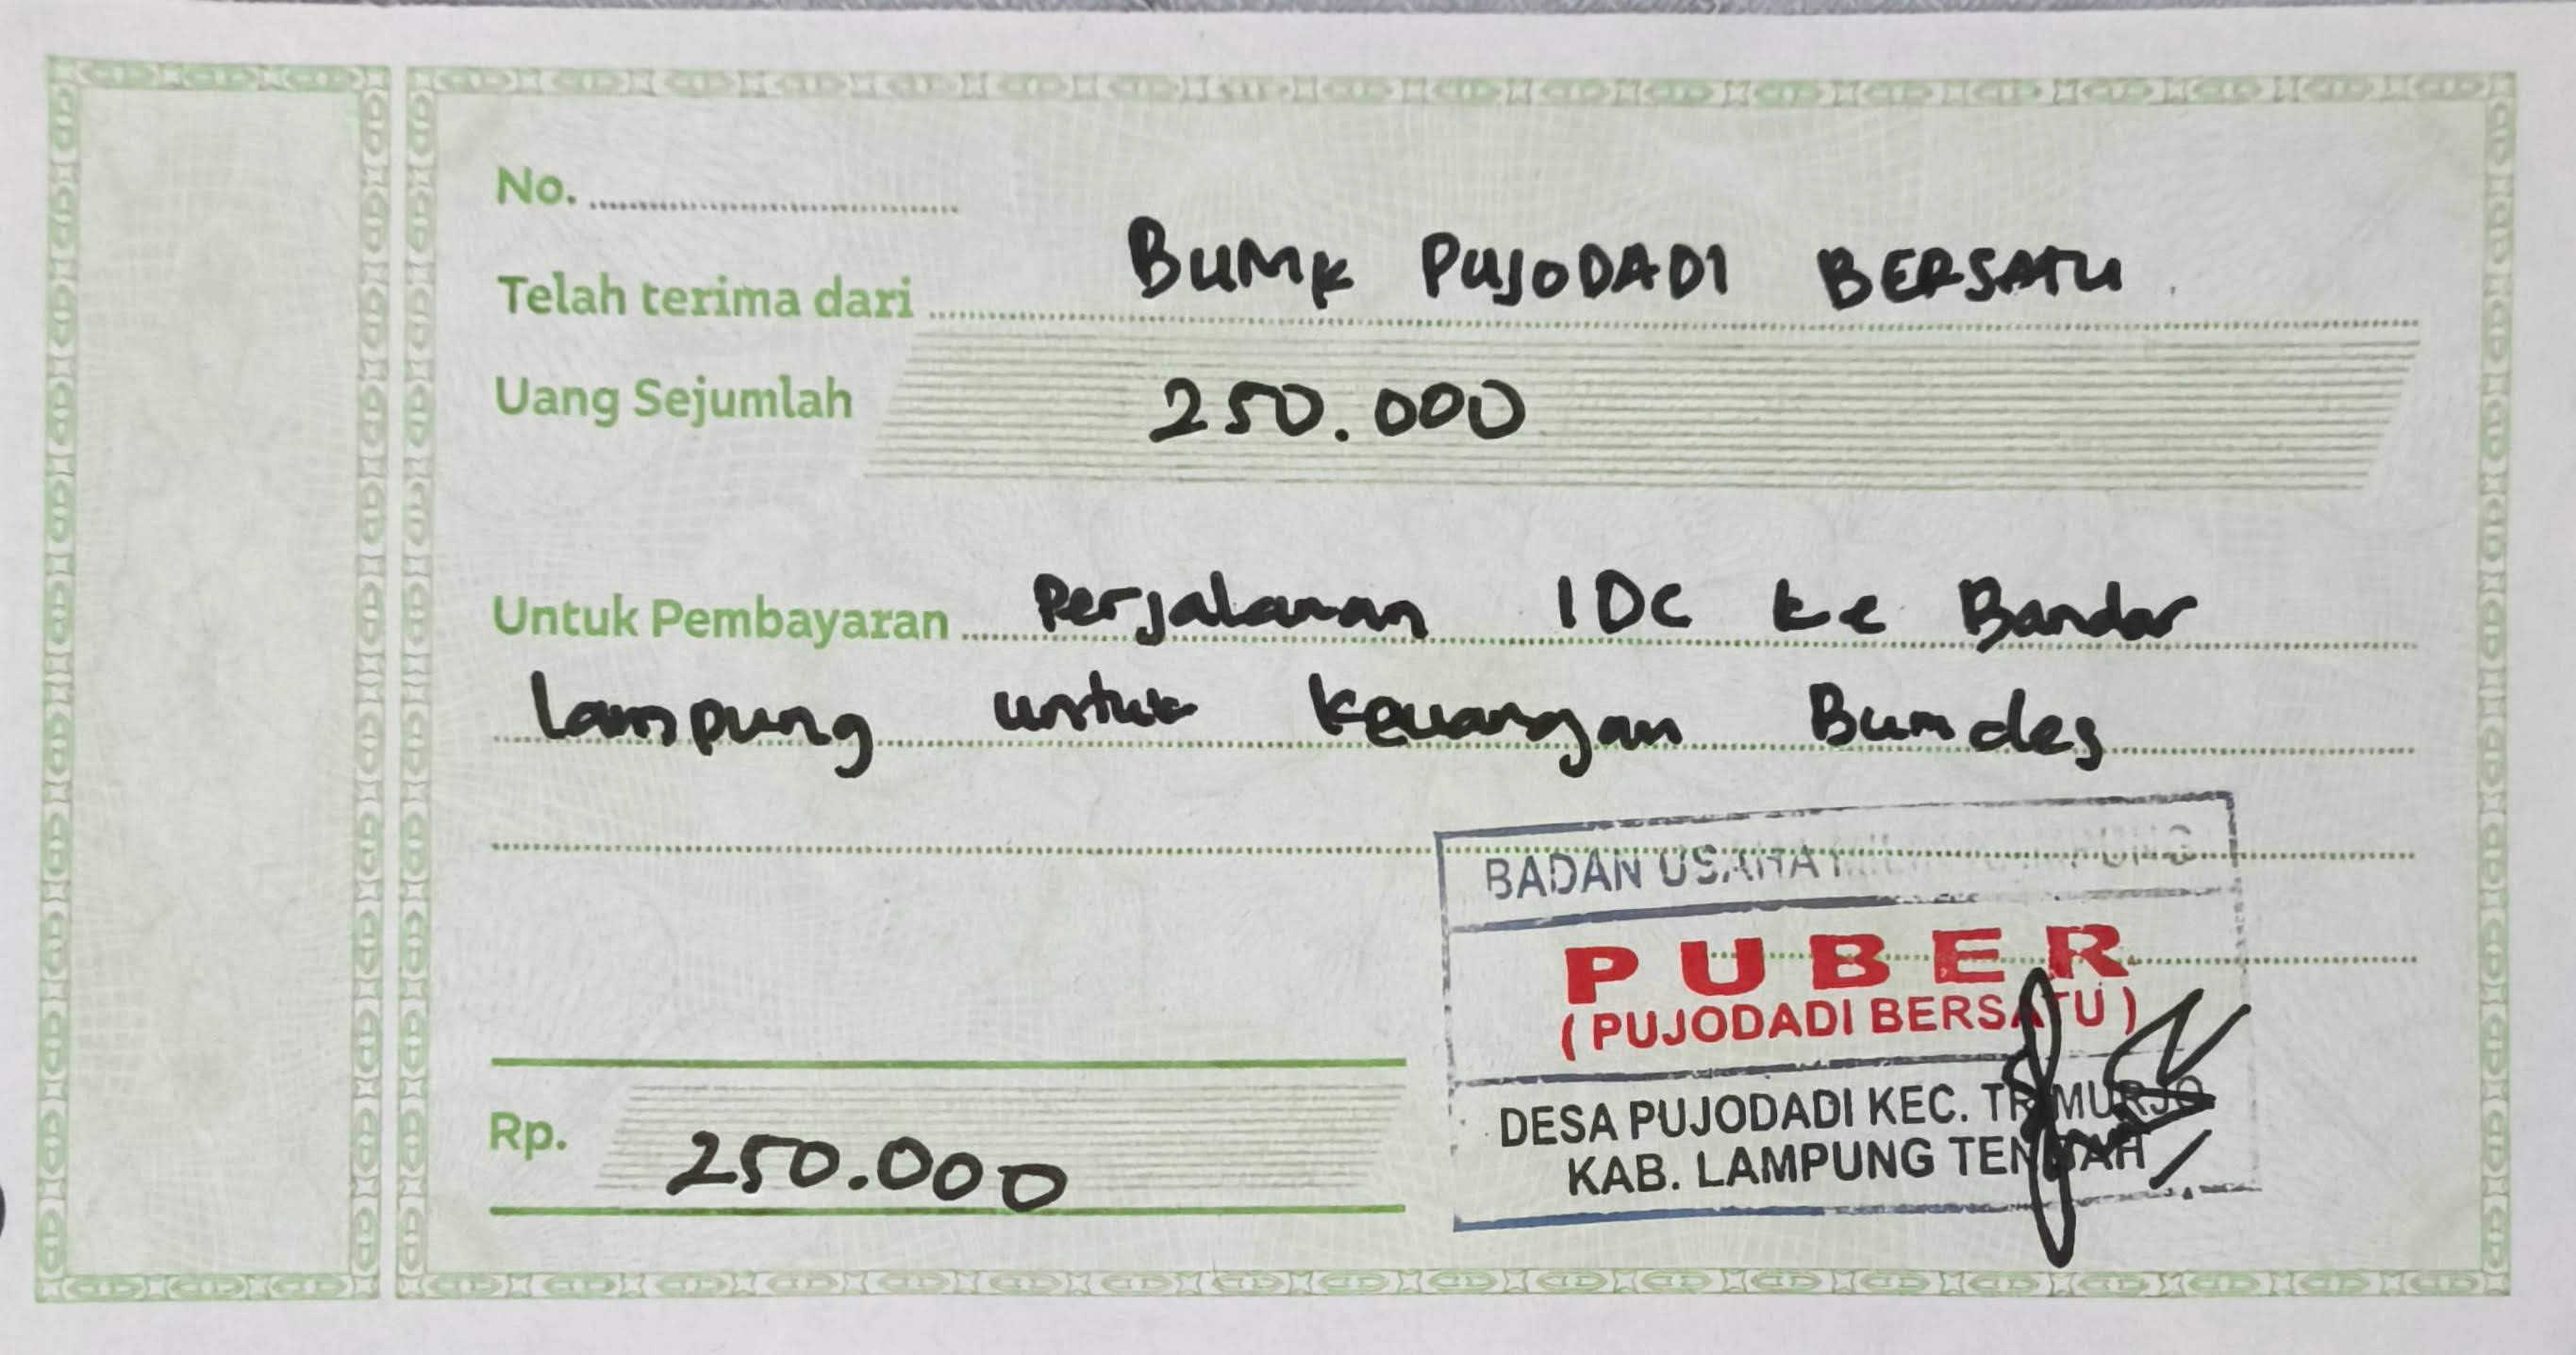 No.
Telah terima dari BUMK PUJODADI BERSATU
Uang Sejumlah 250.000
Untuk Pembayaran Perjalanan IDC ke Bandar
Lampung untuk keuangan Bumdes
BADAN USAHA
PUBER
( PUJODADI BERSATU )
DESA PUJODADI KEC. TRIMURJO
KAB. LAMPUNG TENGAH
Rp. 250.000